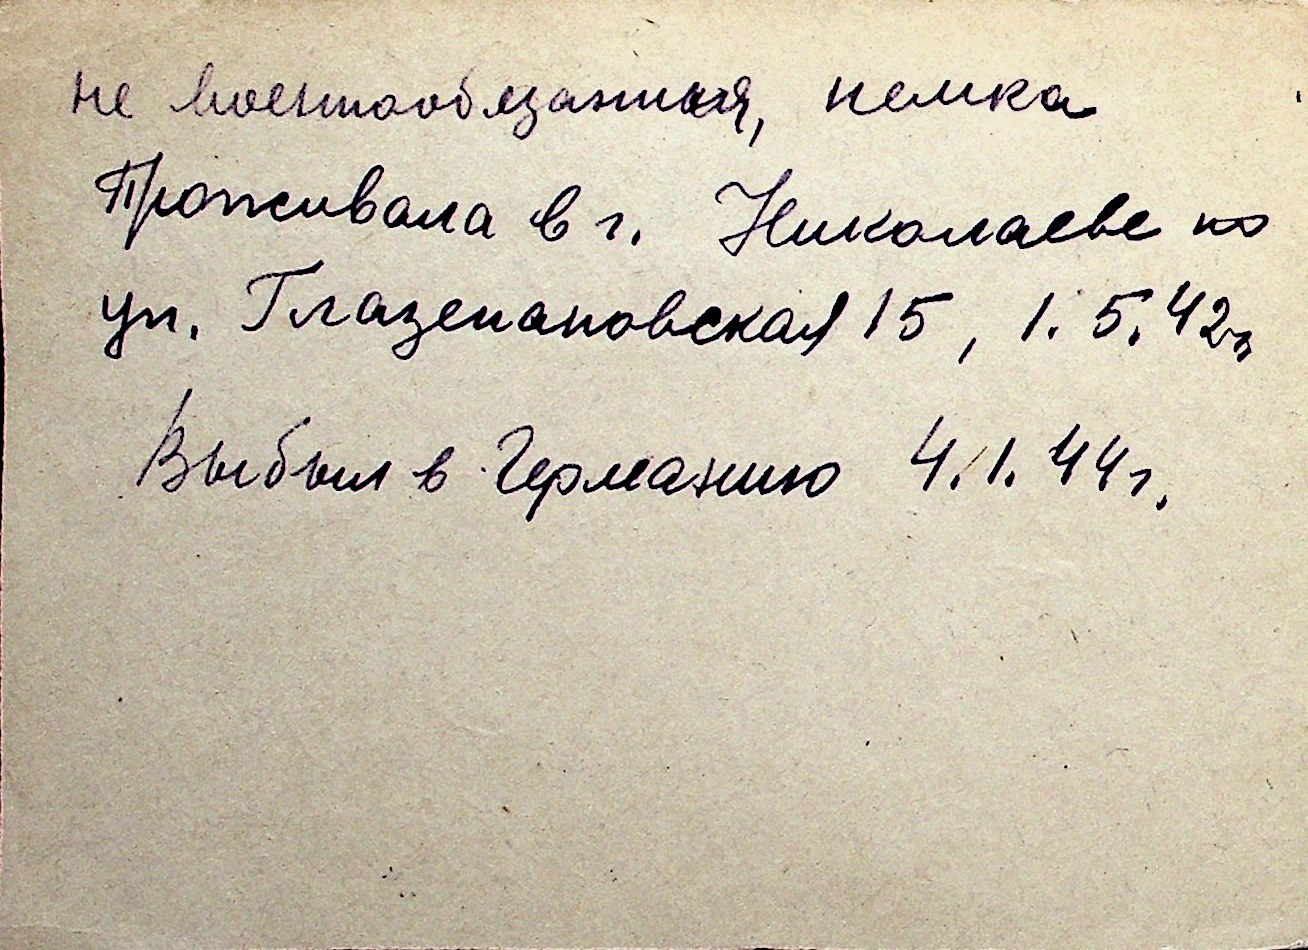 не военнообязанная, немка
Проживала в г. Николаеве по
ул. Глазенаповская 15, 1.5.42г,
Выбыл в Германию 4.1.44г.